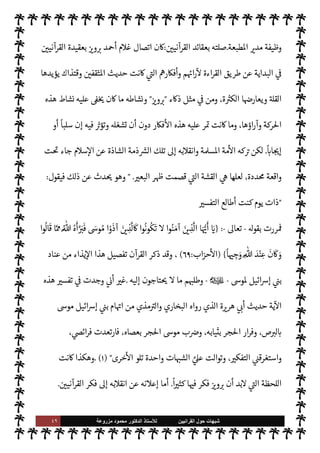 وظيفة مدير المطبعة.صلته بعقائد القرآنيين:كان اتصال غلام أحمد برويز بعقيدة القرآنيين
في البداية عن طريق القراءة لآرائهم وأفكارهم التي كانت حديث المثقفين وقتذاك يؤيدها
القلة ويعارضها الكثرة، ومن في مثل ذكاء "برويز" ونشاطه ما كان يخفى عليه نشاط هذه
الحركة وآراؤها، وما كانت تمر عليه هذه الأفكار دون أن تشغله وتؤثر فيه إن سلباً أو
إيجاباً. لكن تركه الأمة المسلمة وانقلابه إلى تلك الشرذمة الشاذة عن الإسلام جاء تحت
واقعة محددة، لعلها هي القشة التي قصمت ظهر البعير. " وهو يحدث عن ذلك فيقول:
"ذات يوم كنت أطالع التفسير
فمررت بقوله - تعالى -: (يَا أَيُّهَا الَّذِينَ آمَنُوا لَا تَكُونُوا كَالَّذِينَ آذَوْا مُوسَى فَبَرَّأَهُ اللَّهُ مِمَّا قَالُوا
وَكَانَ عِنْدَ اللَّهِ وَجِيهاً) (الأحزاب:٦٩) ، وقد ذكر القرآن تفصيل هذا الإيذاء من عناد
بني إسرائيل لموسى - ﷺ - وطلبهم ما لا يحتاجون إليه .غير أني وجدت في تفسير هذه
الآية حديث أبي هريرة الذي رواه البخاري والترمذي من اتهام بني إسرائيل موسى
بالبرص، وفرار الحجر بثيابه، وضرب موسى الحجر بعصاه، فارتعدت فرائصي،
واستغرقني التفكير، وتوالت علىَّ الشبهات واحدة تلو الأخرى" (١) .وهكذا كانت
اللحظة التي لابد أن برويز فكر فيها كثيراً. أما إعلانه عن انقلابه إلى فكر القرآنيين.
شبهات حول القرانيين للأستاذ الدكتور محمود مزروعة ٤٩